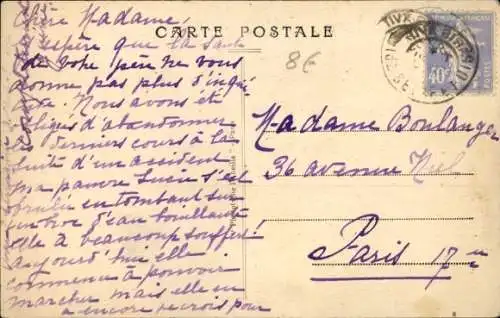 CARTE POSTALE
8€
40
POSTES
Chère Madame,
J'espère que la santé
de votre père ne vous
donne pas plus d'inqui
Nous avons été
obligés d'abandonner
derniers cours à la
suite d'un accident
ma pauvre Lucie s'est
en tombant sur
un broc d'eau bouillante
elle a beaucoup souffert
aujourd'hui elle
commence à pouvoir
marcher mais elle en
a encore pour
Madame Boulanger
36 avenue Niel
Paris 17e